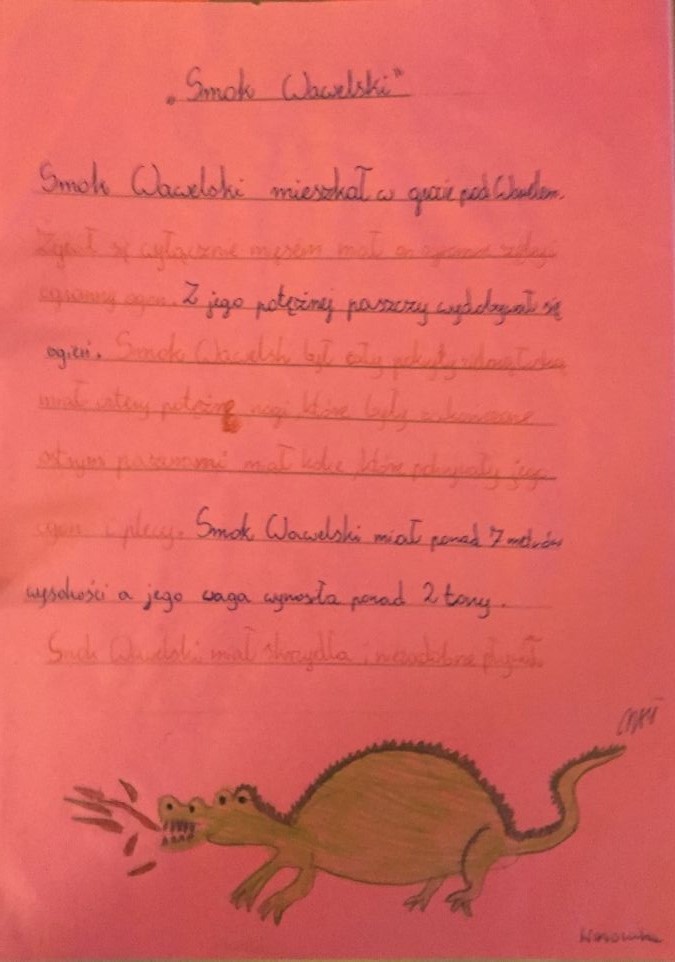 „Smok Wawelski"
Smok Wawelski mieszkał w grocie pod Wawelem.
się wyłącznie mięsem miał on ogromne zęby i
ogromny ogon. Z jego potężnej paszczy wydobywał się
ogień. Smok Wawelski był cały pokryty
miał cztery potężne nogi, które były zakończone
ostrymi pazurami miał kolce, które pokrywały jego
ogon i plecy. Smok Wawelski miał ponad 7 metrów
wysokości a jego waga wynosła ponad 2 tony.
Smok Wawelski miał skrzydła i